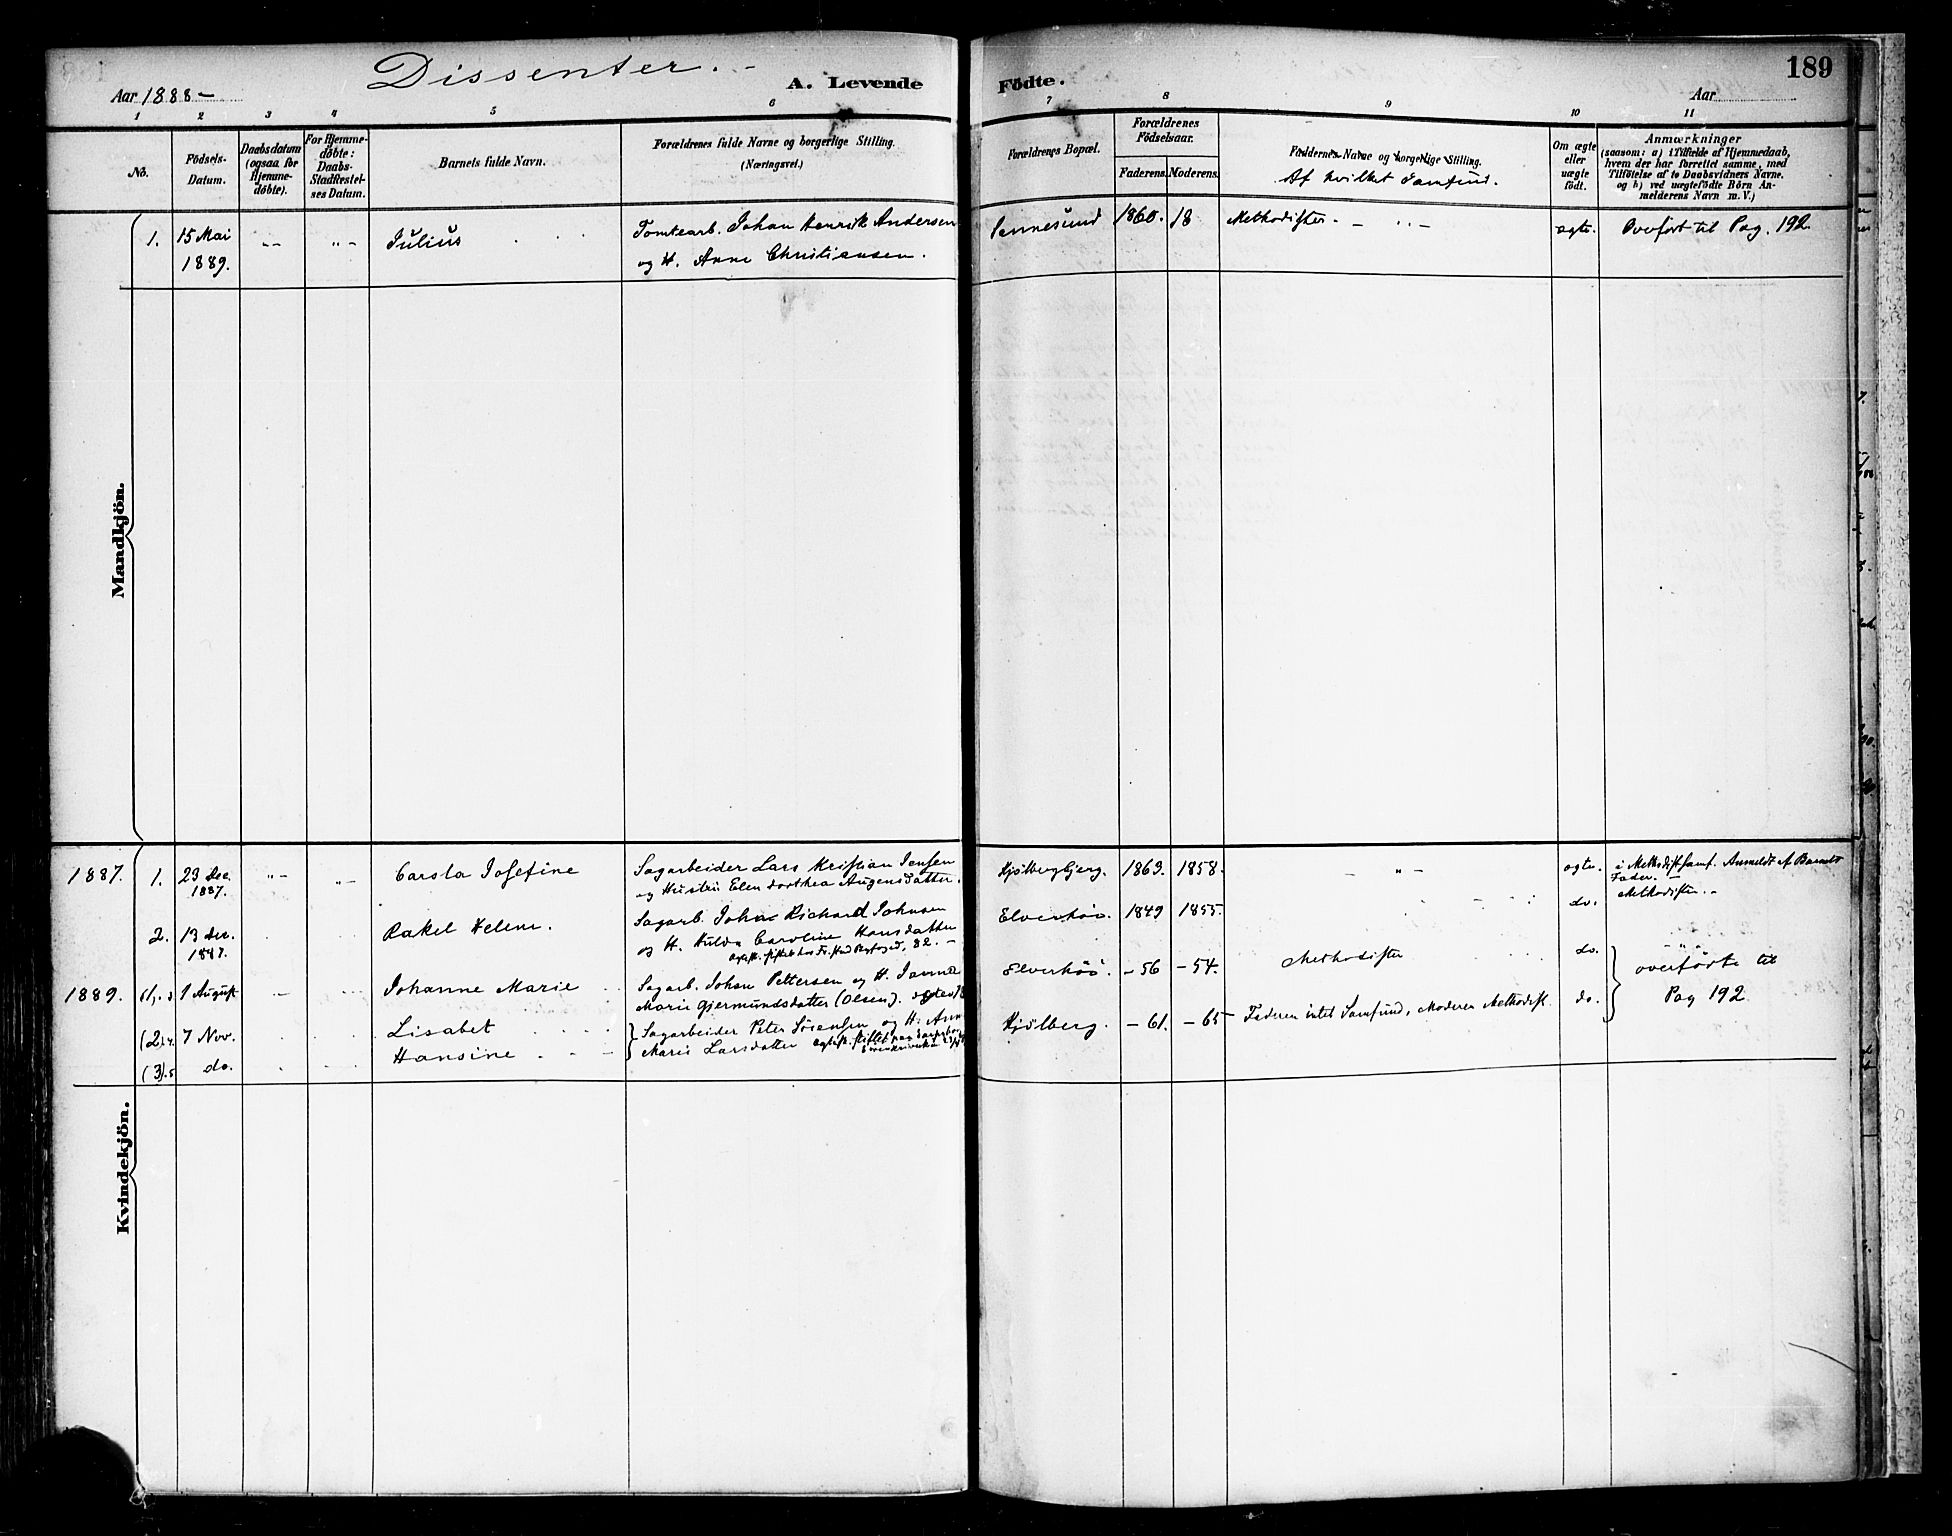 Dissenter. -
A. Levende Födte.
189
Aar 1888 -
Aar
1 2 3 4 5 6 7 8 9 10 11
No.
Födsels-
Datum.
Daabsdatum
(ogsaa for
Hjemme-
døbte).
For Hjemme-
døbte:
Daabs
Stadfæstel-
ses Datum.
Barnets fulde Navn.
Forældrenes fulde Navne og borgerlige Stilling.
(Næringsvei.)
Forældrenes Bopæl.
Forældrenes
Födselsaar.
Faderens.
Moderens.
Faddernes Navne og borgerlige Stilling.
Af hvilket Samfund.
Om ægte
eller
uægte
født.
Anmærkninger
(saasom: a) i Tilfælde af Hjemmedaab,
hvem der har forrettet samme, med
Tilföielse af to Daabsvidners Navne.
og b) ved uægtefödte Börn An-
melderens Navn m. V.)
Mandkjön.
1. 15 Mai Julius Tomtearb. Johan Henrik Andersen 1860. 18 Methodister - ægte. Overført til Pag. 192
1889. og H. Anne Christiansen.
Kvindekjön.
1887. 1. 23 Dec. Carsta Josefine Sagarbeider Lars Kristian Jensen Kjølbergbjerg. 1863. 1858. ægte. i Methodistsamf. Anmeldt af Barnets
1887. og Hustru Elen Dorthea Augensdatter. Fader. -
2. 13 Dec. Rakel Helene. Sagarb. Johan Richard Johnsen Elverhöi. 1849 1855. do. Methodister. -
1887. og H. Hulda Caroline Hansdatter
82. -
1889. 1 August Johanne Marie Sagarb. Johan Pettersen og H. Elverhöi - 56 - 54. Methodister do. overförte til
Marie Gjermundsdatter (Olsen). Pag 192
(2).4. 7 Nov. Lisabet Sagarbeider Peter Sörensen og H. Kjölberg. - 61. - 65 Faderen intet Samfund, Moderen Methodist. do.
(3).5 do. Hansine Marie Larsdatter